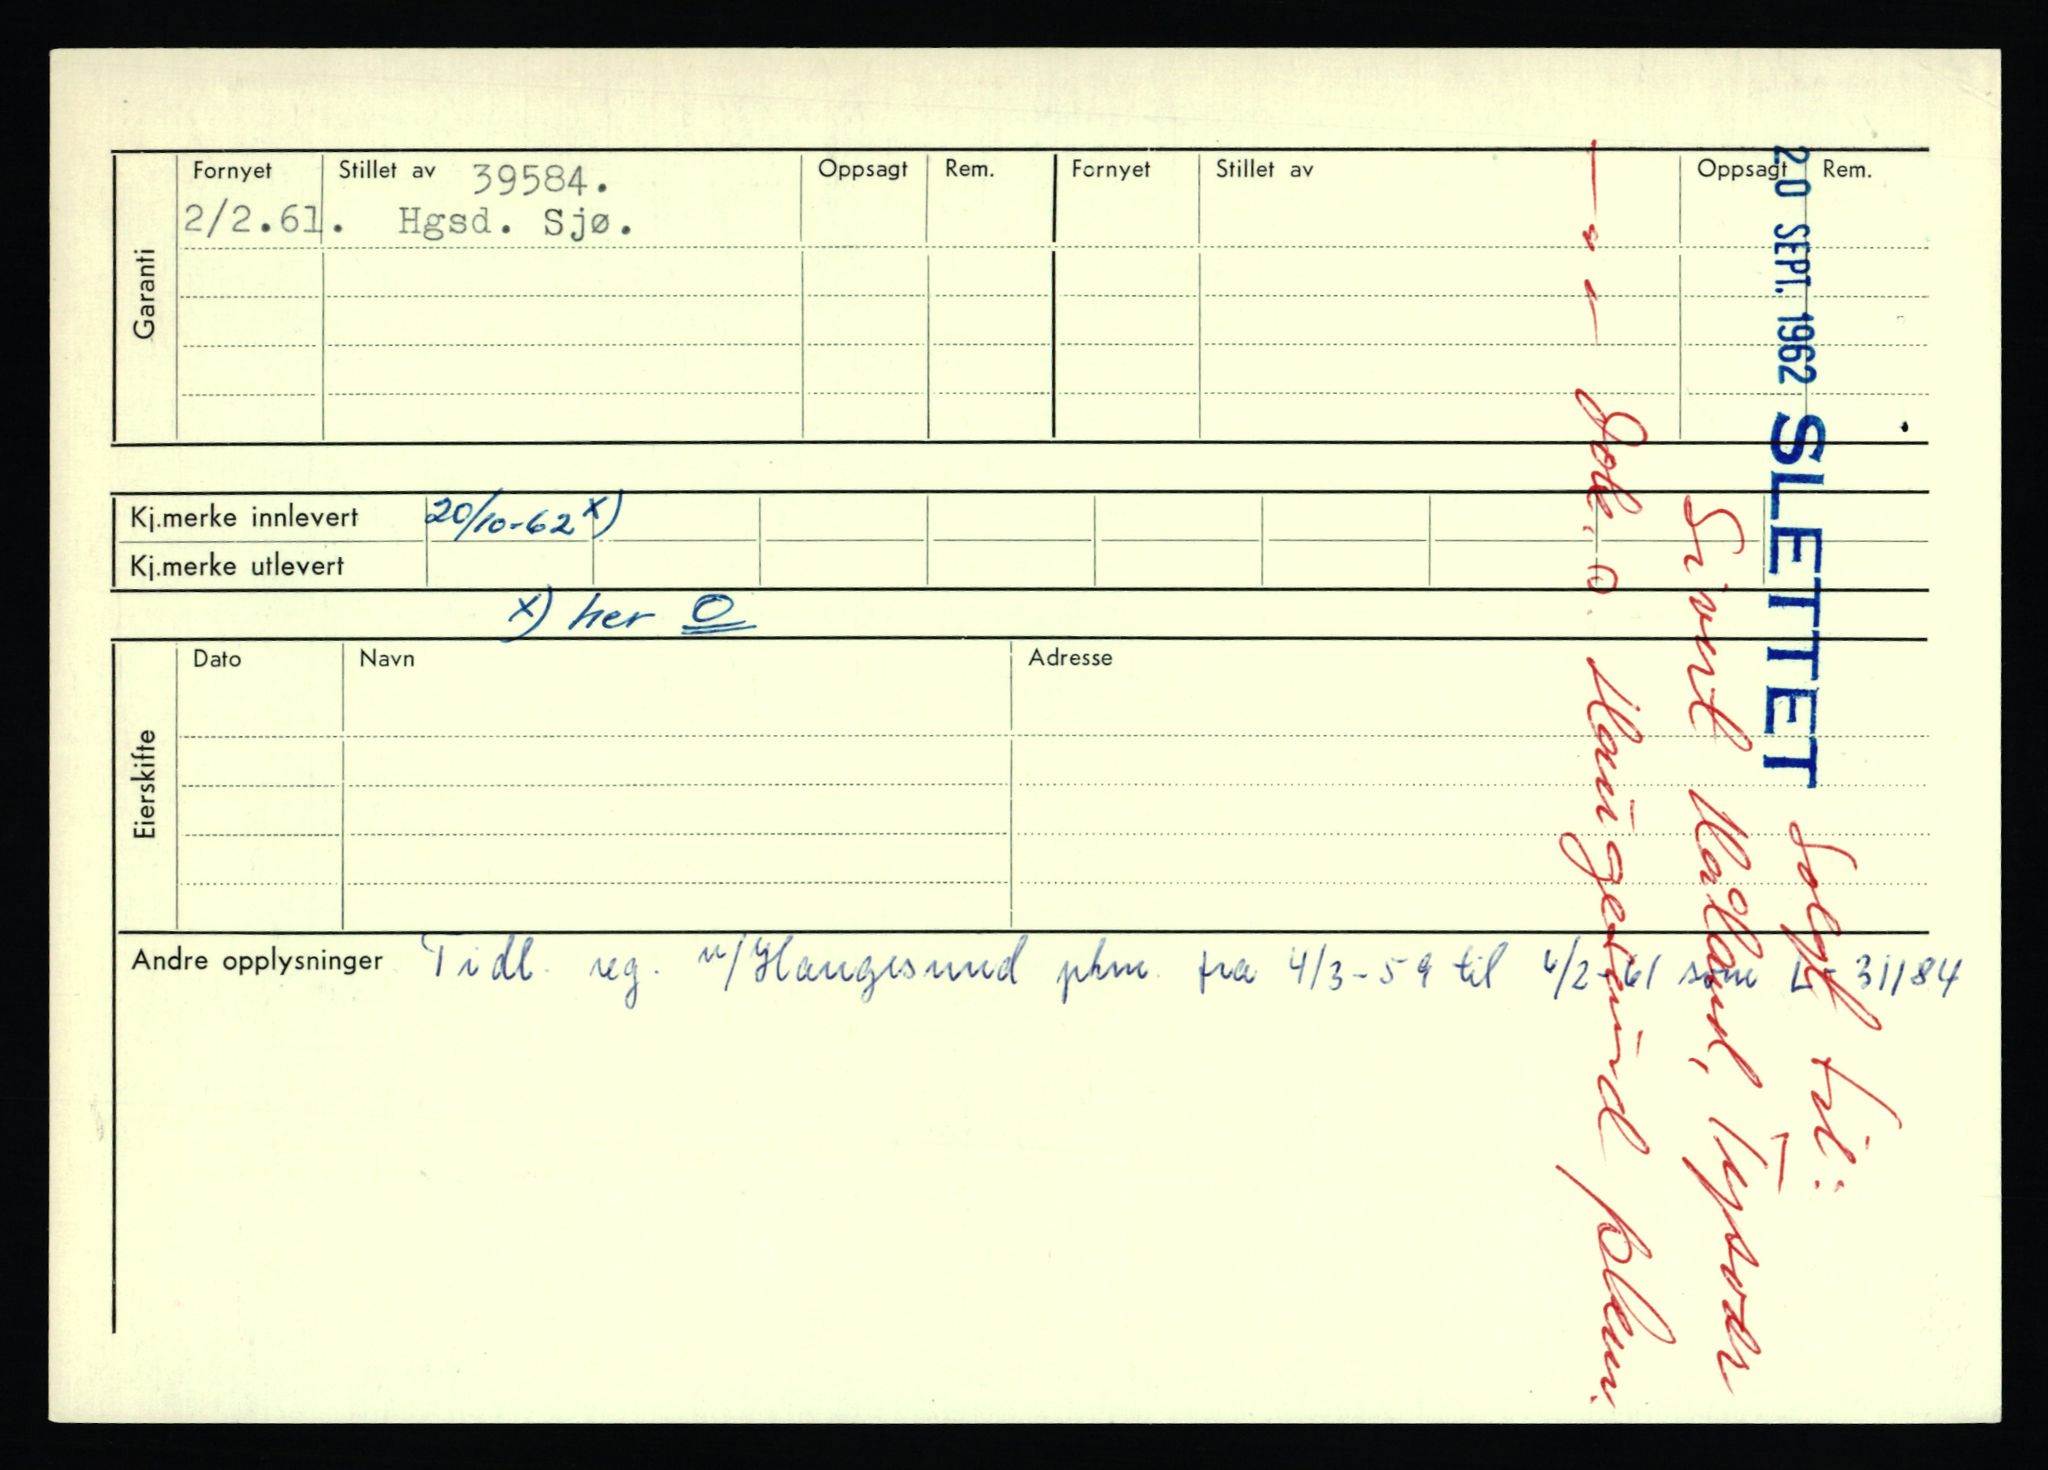 Garanti
Fornyet Stillet av Oppsagt Rem. Fornyet Stillet av Oppsagt Rem.
39584.
2/2.61. Hgsd. Sjø.
Kj.merke innlevert 20/10-62 x)
Kj.merke utlevert
x) her O
Eierskifte
Dato Navn Adresse
Andre opplysninger Tidl. reg. v/Haugesund pkm. fra 4/3-59 til 6/2-61 som L-31184
20 SEPT. 1962 SLETTET solgt til:
Sivert Tysvær
— " — Haugesund pkm.